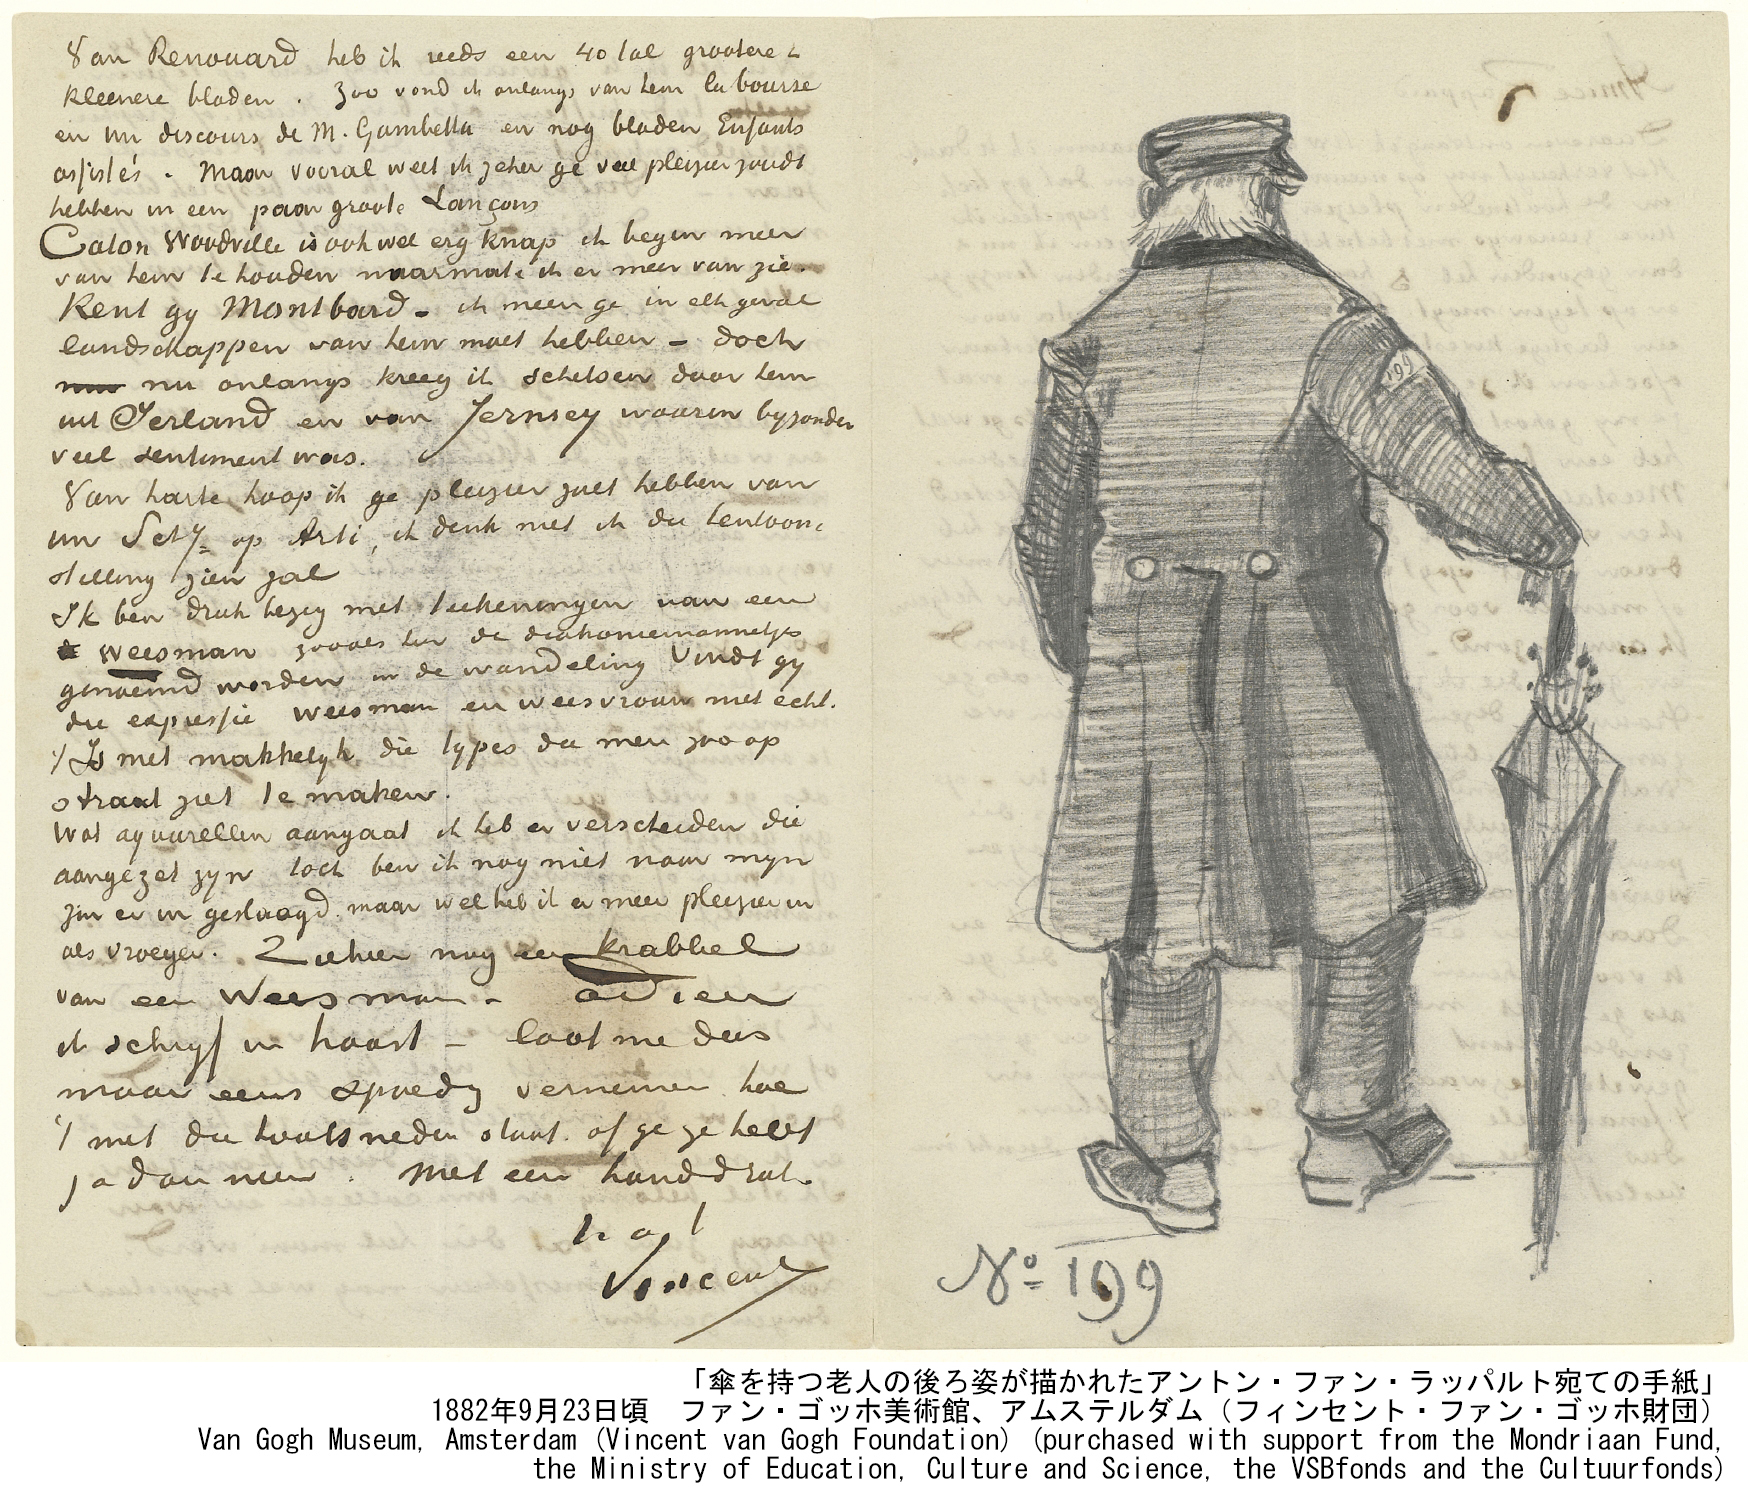 Van Renouard heb ik reeds een 40 tal grootere &
kleenere bladen. Zoo vond ik onlangs van hem la bourse
en un discours de M. Gambetta en nog bladen Enfants
assistés. Maar vooral weet ik zeker ge veel pleizier zoudt
hebben in een paar groote Lançons
Caton Woodville is ook wel erg knap ik begin meer
van hem te houden naarmate ik er meer van zie.
Kent gy Montbard - ik meen ge in elk geval
landschappen van hem moet hebben - doch
nu onlangs kreeg ik schetsen door hem
uit Ierland en van Jernsey waarin byzonder
veel sentiment was.
Van harte hoop ik ge pleizier zult hebben van
uw op Arti, ik denk niet ik die tentoon=
stelling zien zal
Ik ben druk bezig met teekeningen van een
weesman zooals hier de diakoniemannetjes
genoemd worden in de wandeling Vindt gy
die expressie weesman en weesvrouw niet echt.
't Is niet makkelyk die types die men zoo op
straat ziet te maken.
Wat aquarellen aangaat ik heb er verscheiden die
aangezet zyn toch ben ik nog niet naar myn
zin er in geslaagd maar wel heb ik er meer pleizier in
als vroeger. Ziehier nog een krabbel
van een Weesman - adieu
ik schryf in haast - laat me dus
maar eens spoedig vernemen hoe
't met die houtsneden staat. of ge ze hebt
ja dan neen. Met een handdruk.
Vincent
199
No 199
「傘を持つ老人の後ろ姿が描かれたアントン・ファン・ラッパルト宛ての手紙」
1882年9月23日頃 ファン・ゴッホ美術館、アムステルダム(フィンセント・ファン・ゴッホ財団)
Van Gogh Museum, Amsterdam (Vincent van Gogh Foundation) (purchased with support from the Mondriaan Fund,
the Ministry of Education, Culture and Science, the VSBfonds and the Cultuurfonds)